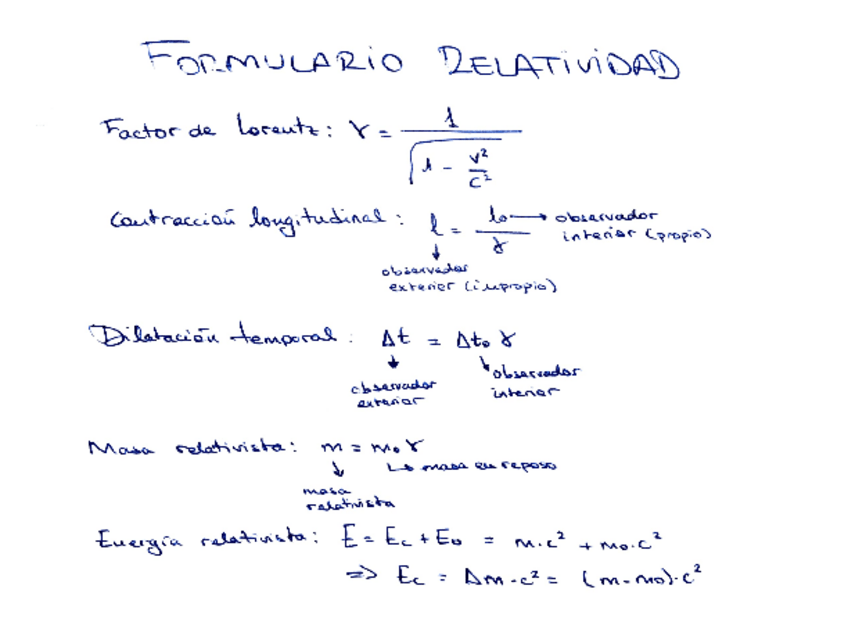 FORMULARIO RELATIVIDAD
Factor de Lorentz: γ = 1 / √(1 - v²/c²)
Contracción longitudinal: l = l₀ / γ → observador interior (propio)
↓ observador exterior (impropio)
Dilatación temporal: Δt = Δt₀ γ
↓ observador exterior ↘ observador interior
Masa relativista: m = m₀ γ
↓ masa relativista ↳ masa en reposo
Energía relativista: E = Ec + E₀ = m·c² + m₀·c²
=> Ec = Δm·c² = (m-m₀)·c²